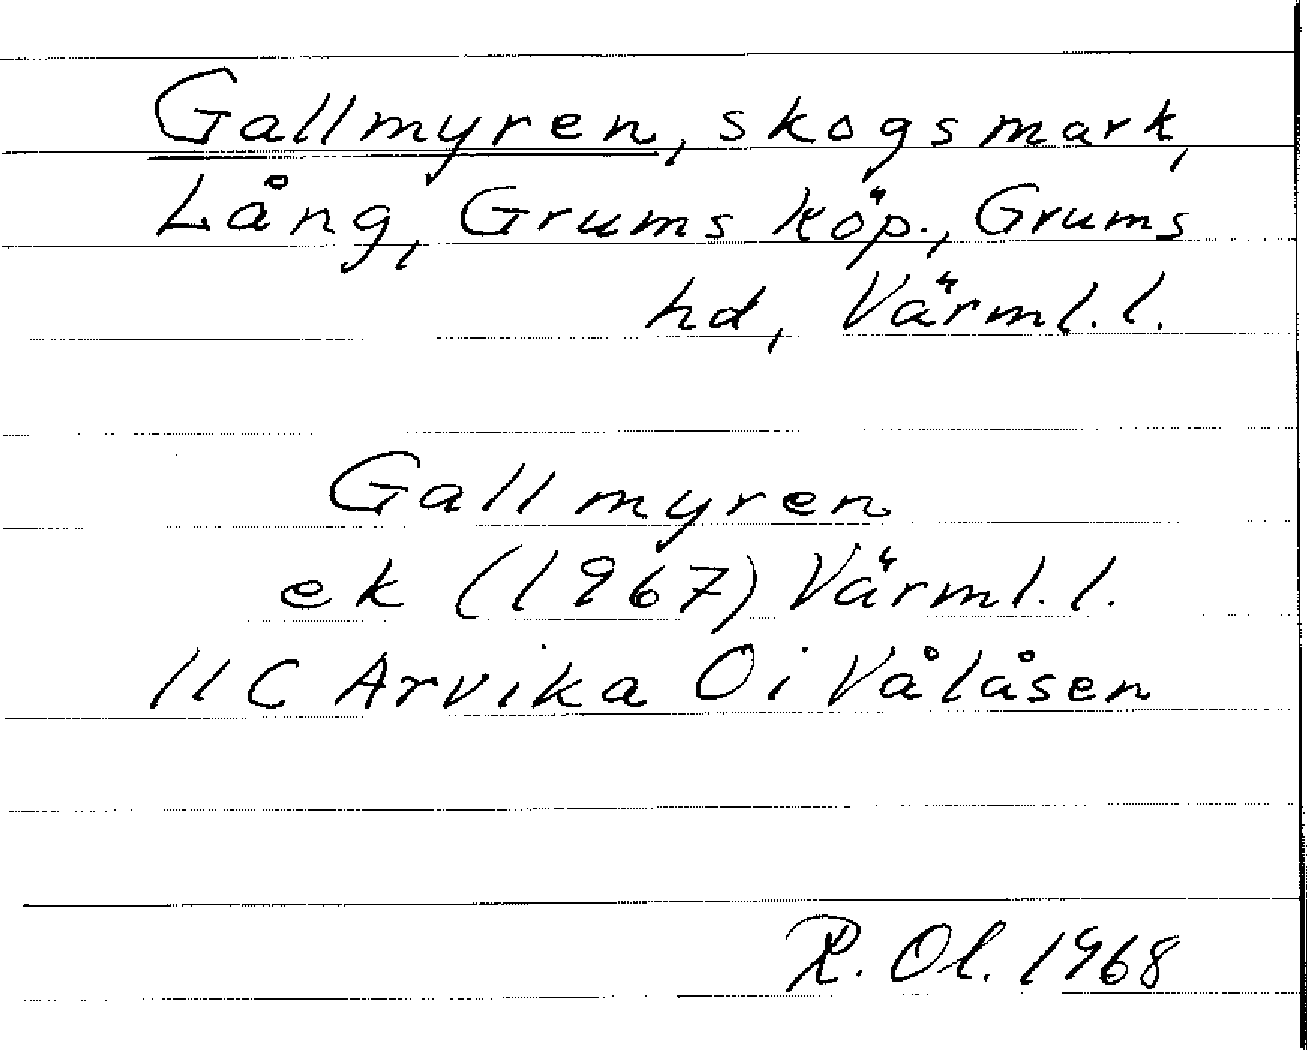 Gallmyren, skogsmark,
Lång, Grums köp., Grums
hd, Värml. l.
Gallmyren
ek (1967) Värml. l.
11C Arvika 0i Vålåsen
R. Ol. 1968